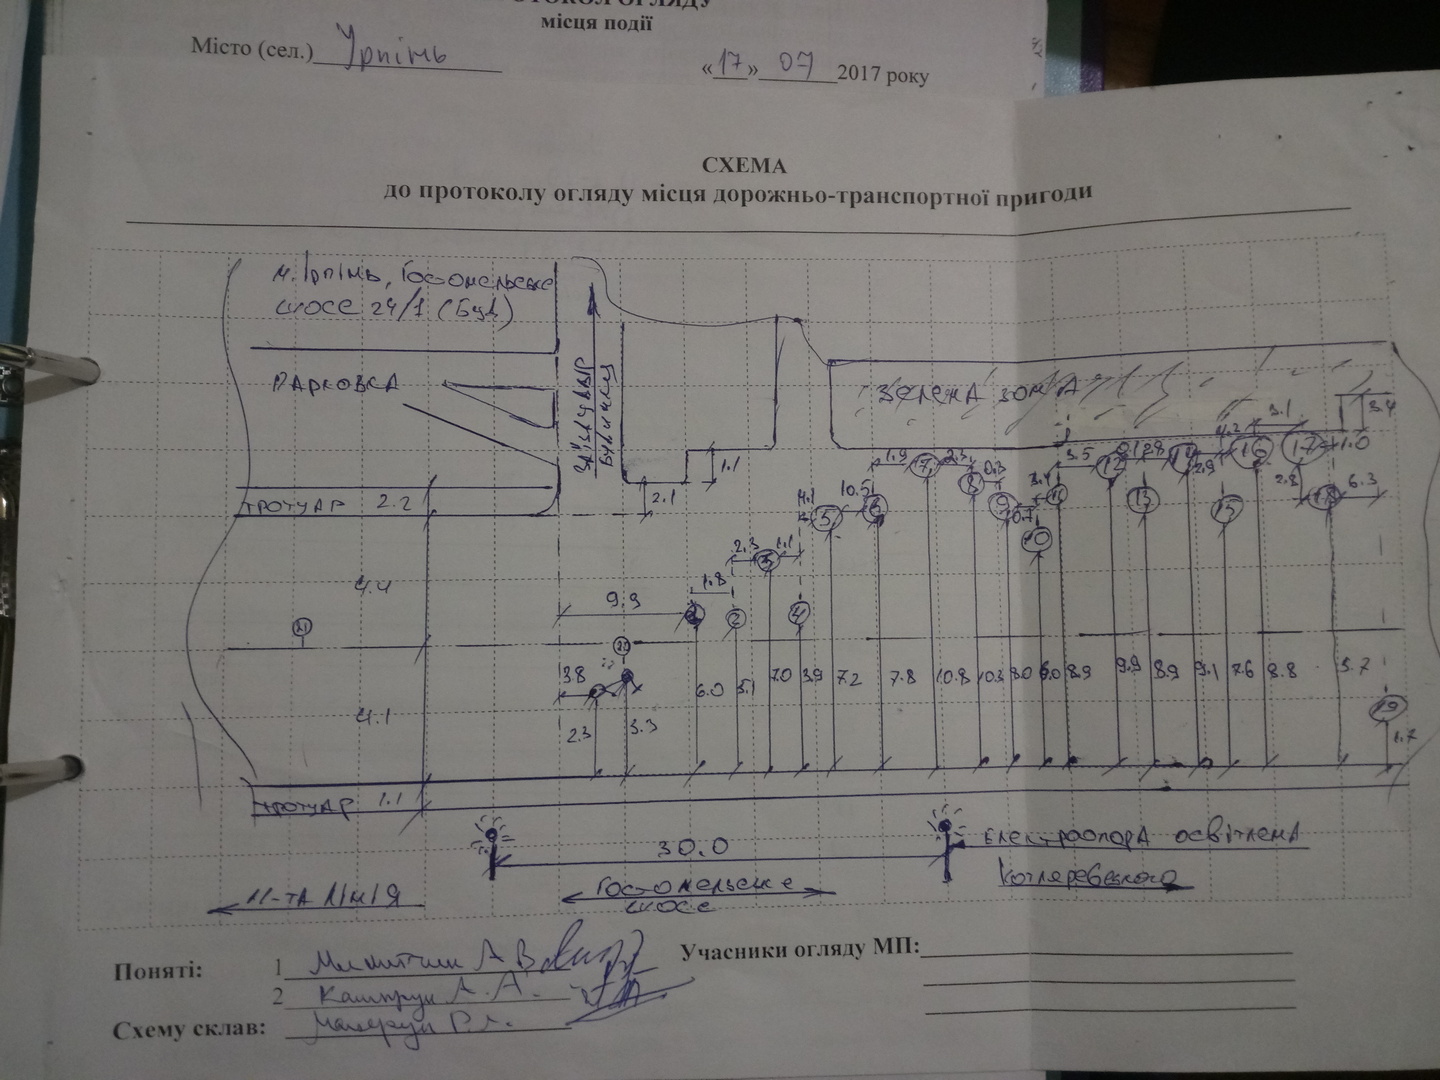 ПРОТОКОЛ ОГЛЯДУ
місця події
Місто (сел.) Ірпінь
«17» 07 2017 року
СХЕМА
до протоколу огляду місця дорожньо-транспортної пригоди
м. Ірпінь, Гостомельське
шосе 24/1 (Буд)
ПАРКОВКА
ЗАЇЗД У ДВІР
БУДИНКУ
ЗЕЛЕНА ЗОНА
3.1
3.4
4.2
1.0
1.1
2.1
1.9 7 2.3 8 0.3 9
3.5 12
14
16 17
2.9
2.8 18 6.3
ТРОТУАР 2.2
4.1 5 10.5 6
0.7
10
11
13
15
2.3 3 1.1
1.8
4.4
21
9.9 1 2 4
20
3.8
2.3
3.3
6.0 5.1 7.0 3.9 7.2 7.8 10.8 10.3 9.0 6.0 8.9 9.9 8.9 9.1 7.6 8.8 5.7
19
1.7
4.1
ТРОТУАР 1.1
30.0
ЕЛЕКТРООПОРА ОСВІТЛЕННЯ
11-ТА ЛІНІЯ
Гостомельське
шосе
Котляревського
Поняті: 1 А В
Учасники огляду МП:
2 А.А.
Схему склав: